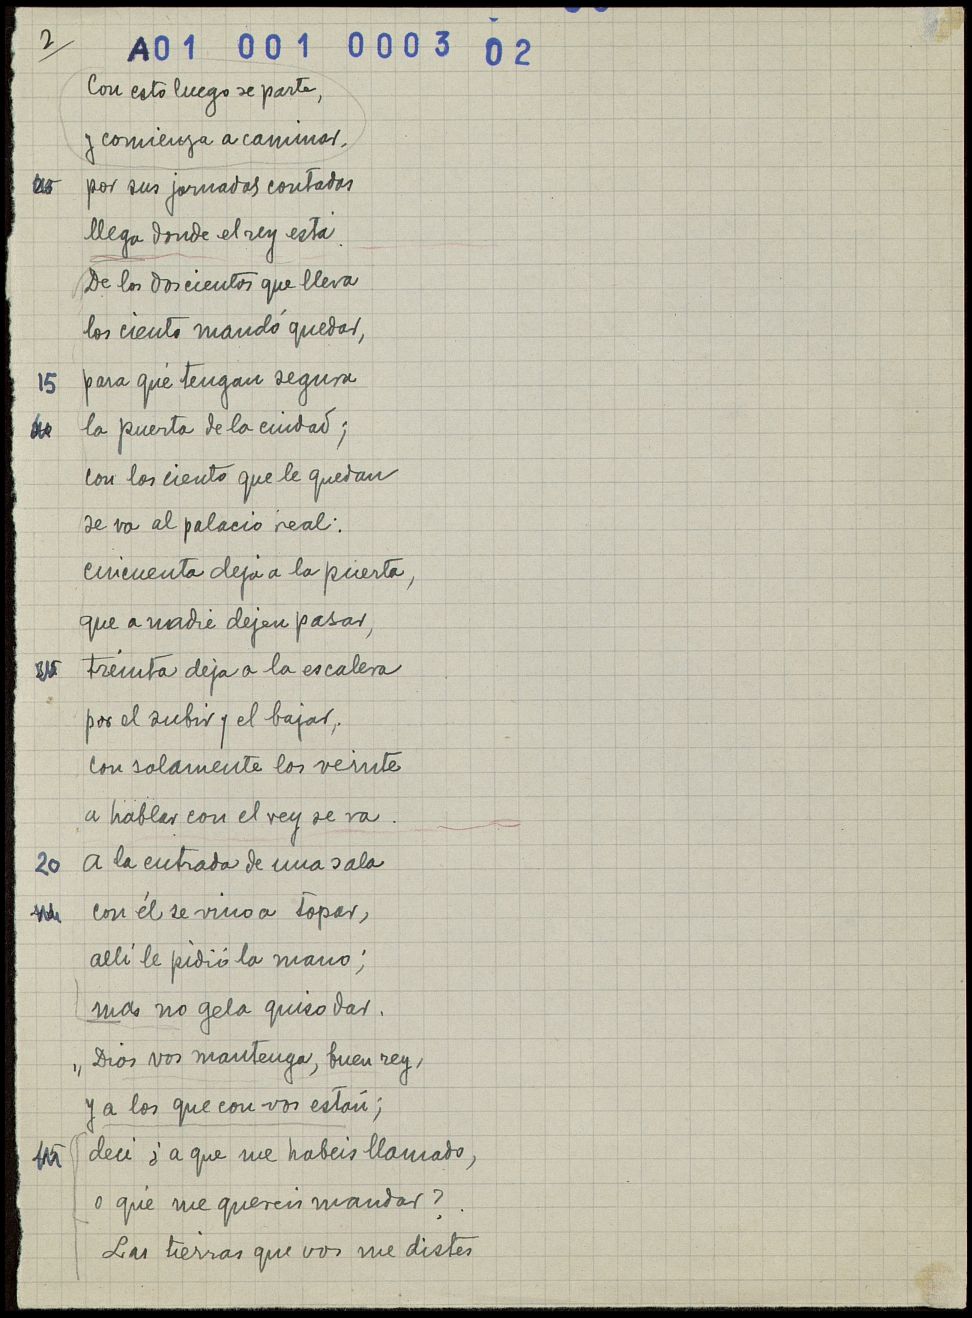 2/
A01 001 0003 02
Con esto luego se parte,
y comienza a caminar.
por sus jornadas contadas
llega donde el rey está.
De los doscientos que lleva
los ciento mandó quedar,
15 para que tengan segura
la puerta de la ciudad;
con los ciento que le quedan
se va al palacio real:
cincuenta deja a la puerta,
que a nadie dejen pasar,
treinta deja a la escalera
por el subir y el bajar,
con solamente los veinte
a hablar con el rey se va.
20 A la entrada de una sala
con él se vino a topar,
allí le pidió la mano;
mas no gela quiso dar.
"Dios vos mantenga, buen rey,
y a los que con vos están;
deci ¿a que me habeis llamado,
o qué me quereis mandar?
Las tierras que vos me distes